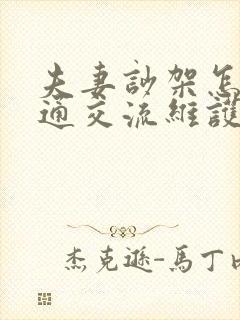 夫妻訬架怎
通交流維護
杰克遜-馬丁